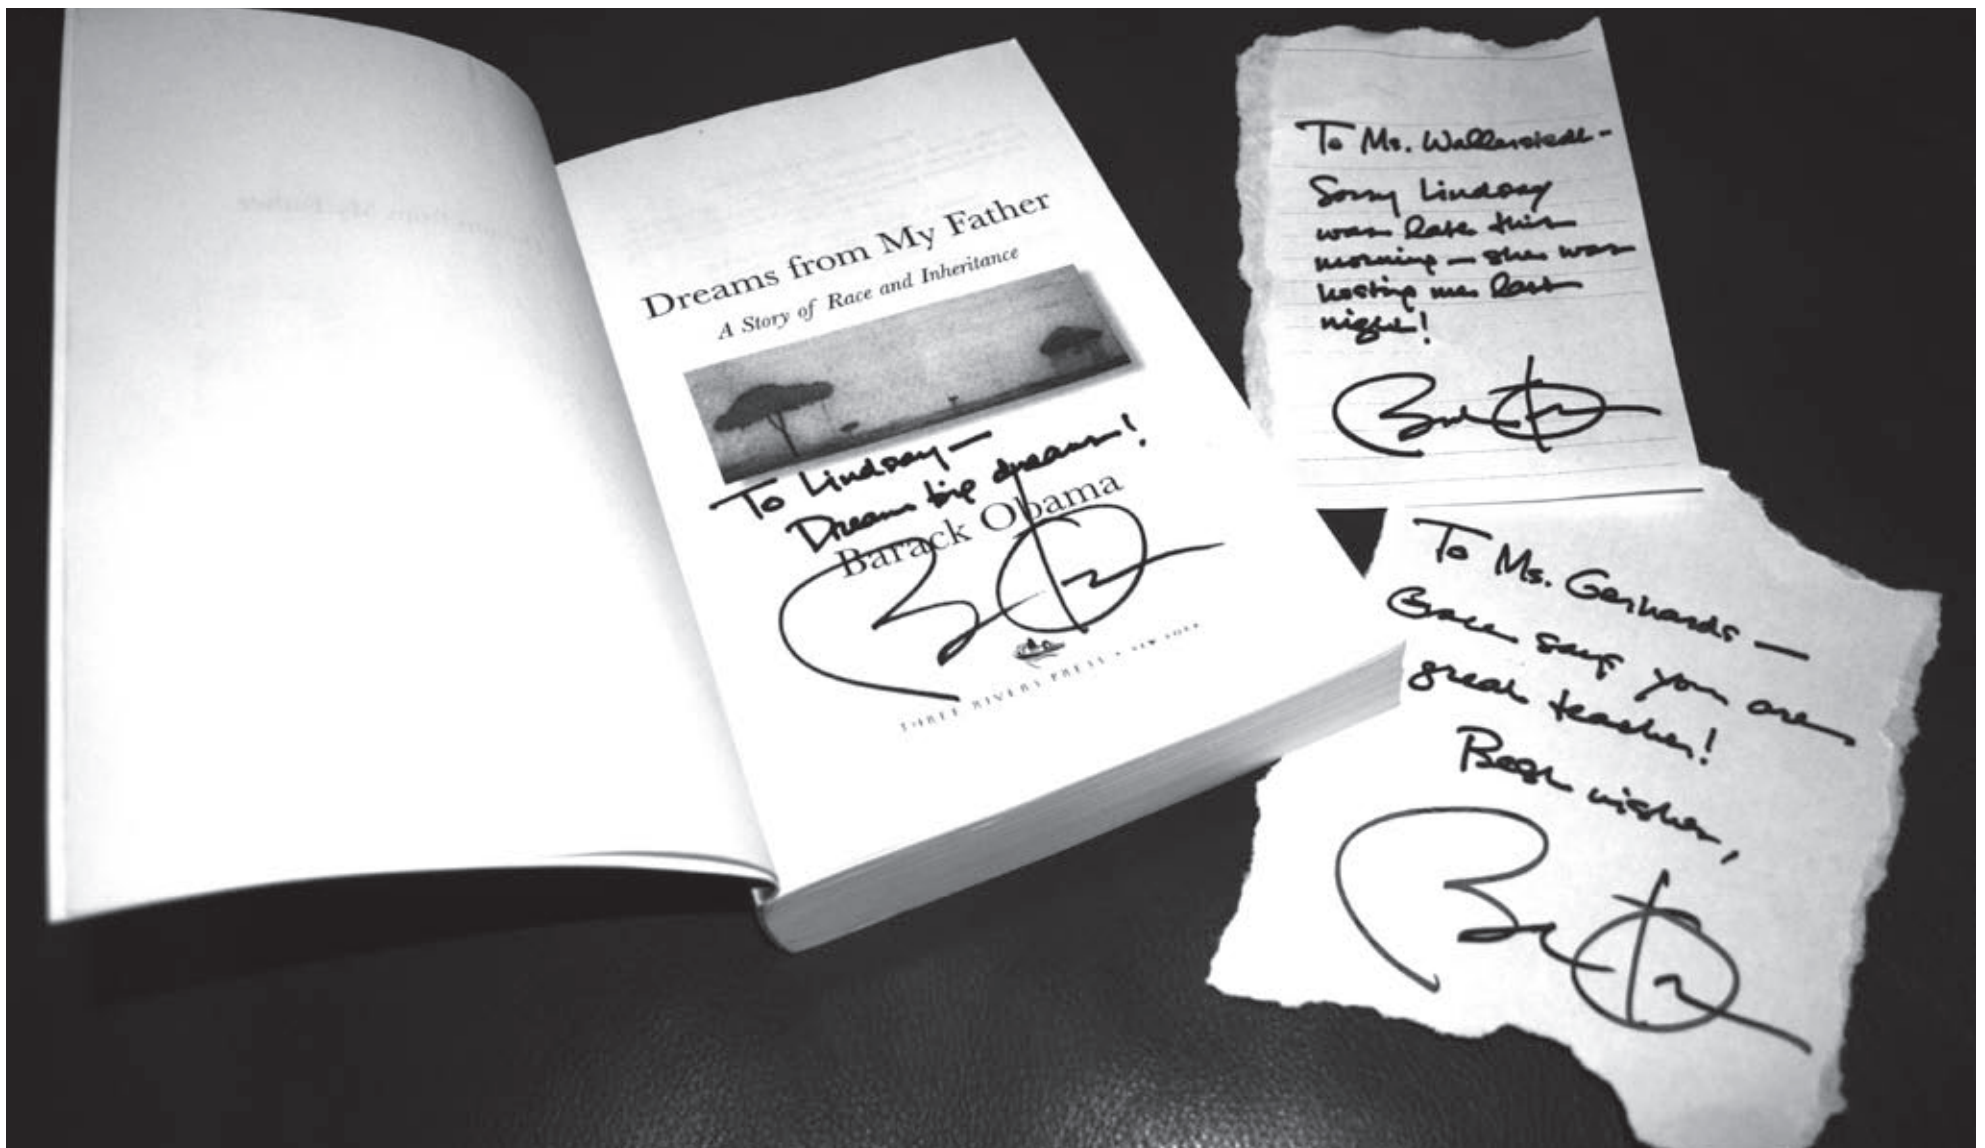 Dreams from My Father
A Story of Race and Inheritance
To Lindsay —
Dream big dreams!
Barack Obama
THREE RIVERS PRESS • NEW YORK
To Ms. Wallerstedt -
Sorry Lindsay
was late this
morning — she was
hosting me last
night!
To Ms. Gerhards —
Grace says you are
great teacher!
Best wishes,